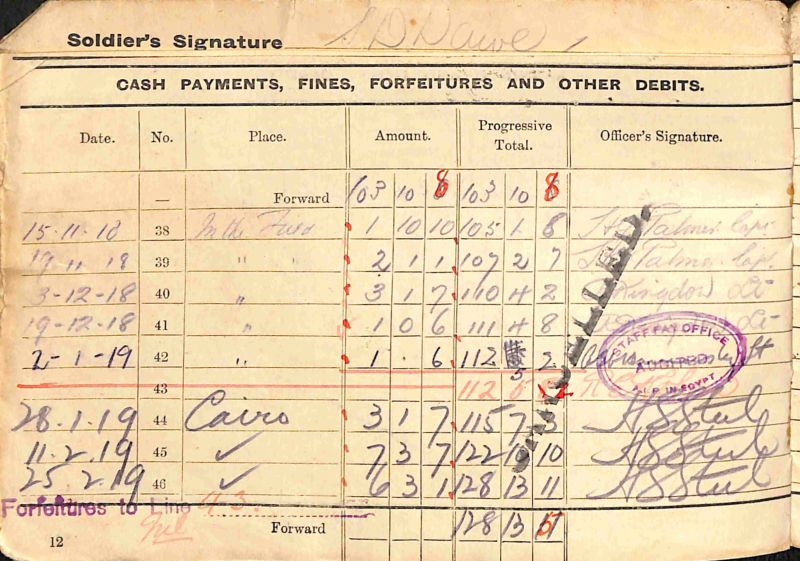 Soldier's Signature
CASH PAYMENTS, FINES, FORFEITURES AND OTHER DEBITS.
Date. No. Place. Amount. Progressive Total. Officer's Signature.
— Forward 103 10 8 103 10 8
15.11.18 38 In the 1 10 10 105 1 8 Palmer Capt
11 18 39 " " 2 1 1 107 2 7 Palmer Capt
3-12-18 40 " 3 1 7 110 4 2 Kingdon Lt
19-12-18 41 " 1 0 6 111 4 8 Lt
2-1-19 42 " 1 . 6 112 5 2
43 112 5 2
28.1.19 44 Cairo 3 1 7 115 7 3
11.2.19 45 ✓ 7 3 7 122 10 10
25.2.19 46 ✓ 6 3 1 128 13 11
CANCELLED.
STAFF PAY OFFICE
AUDITED
A.I.F. IN EGYPT
Forfeitures to Line 43.
nil
Forward 128 13
12